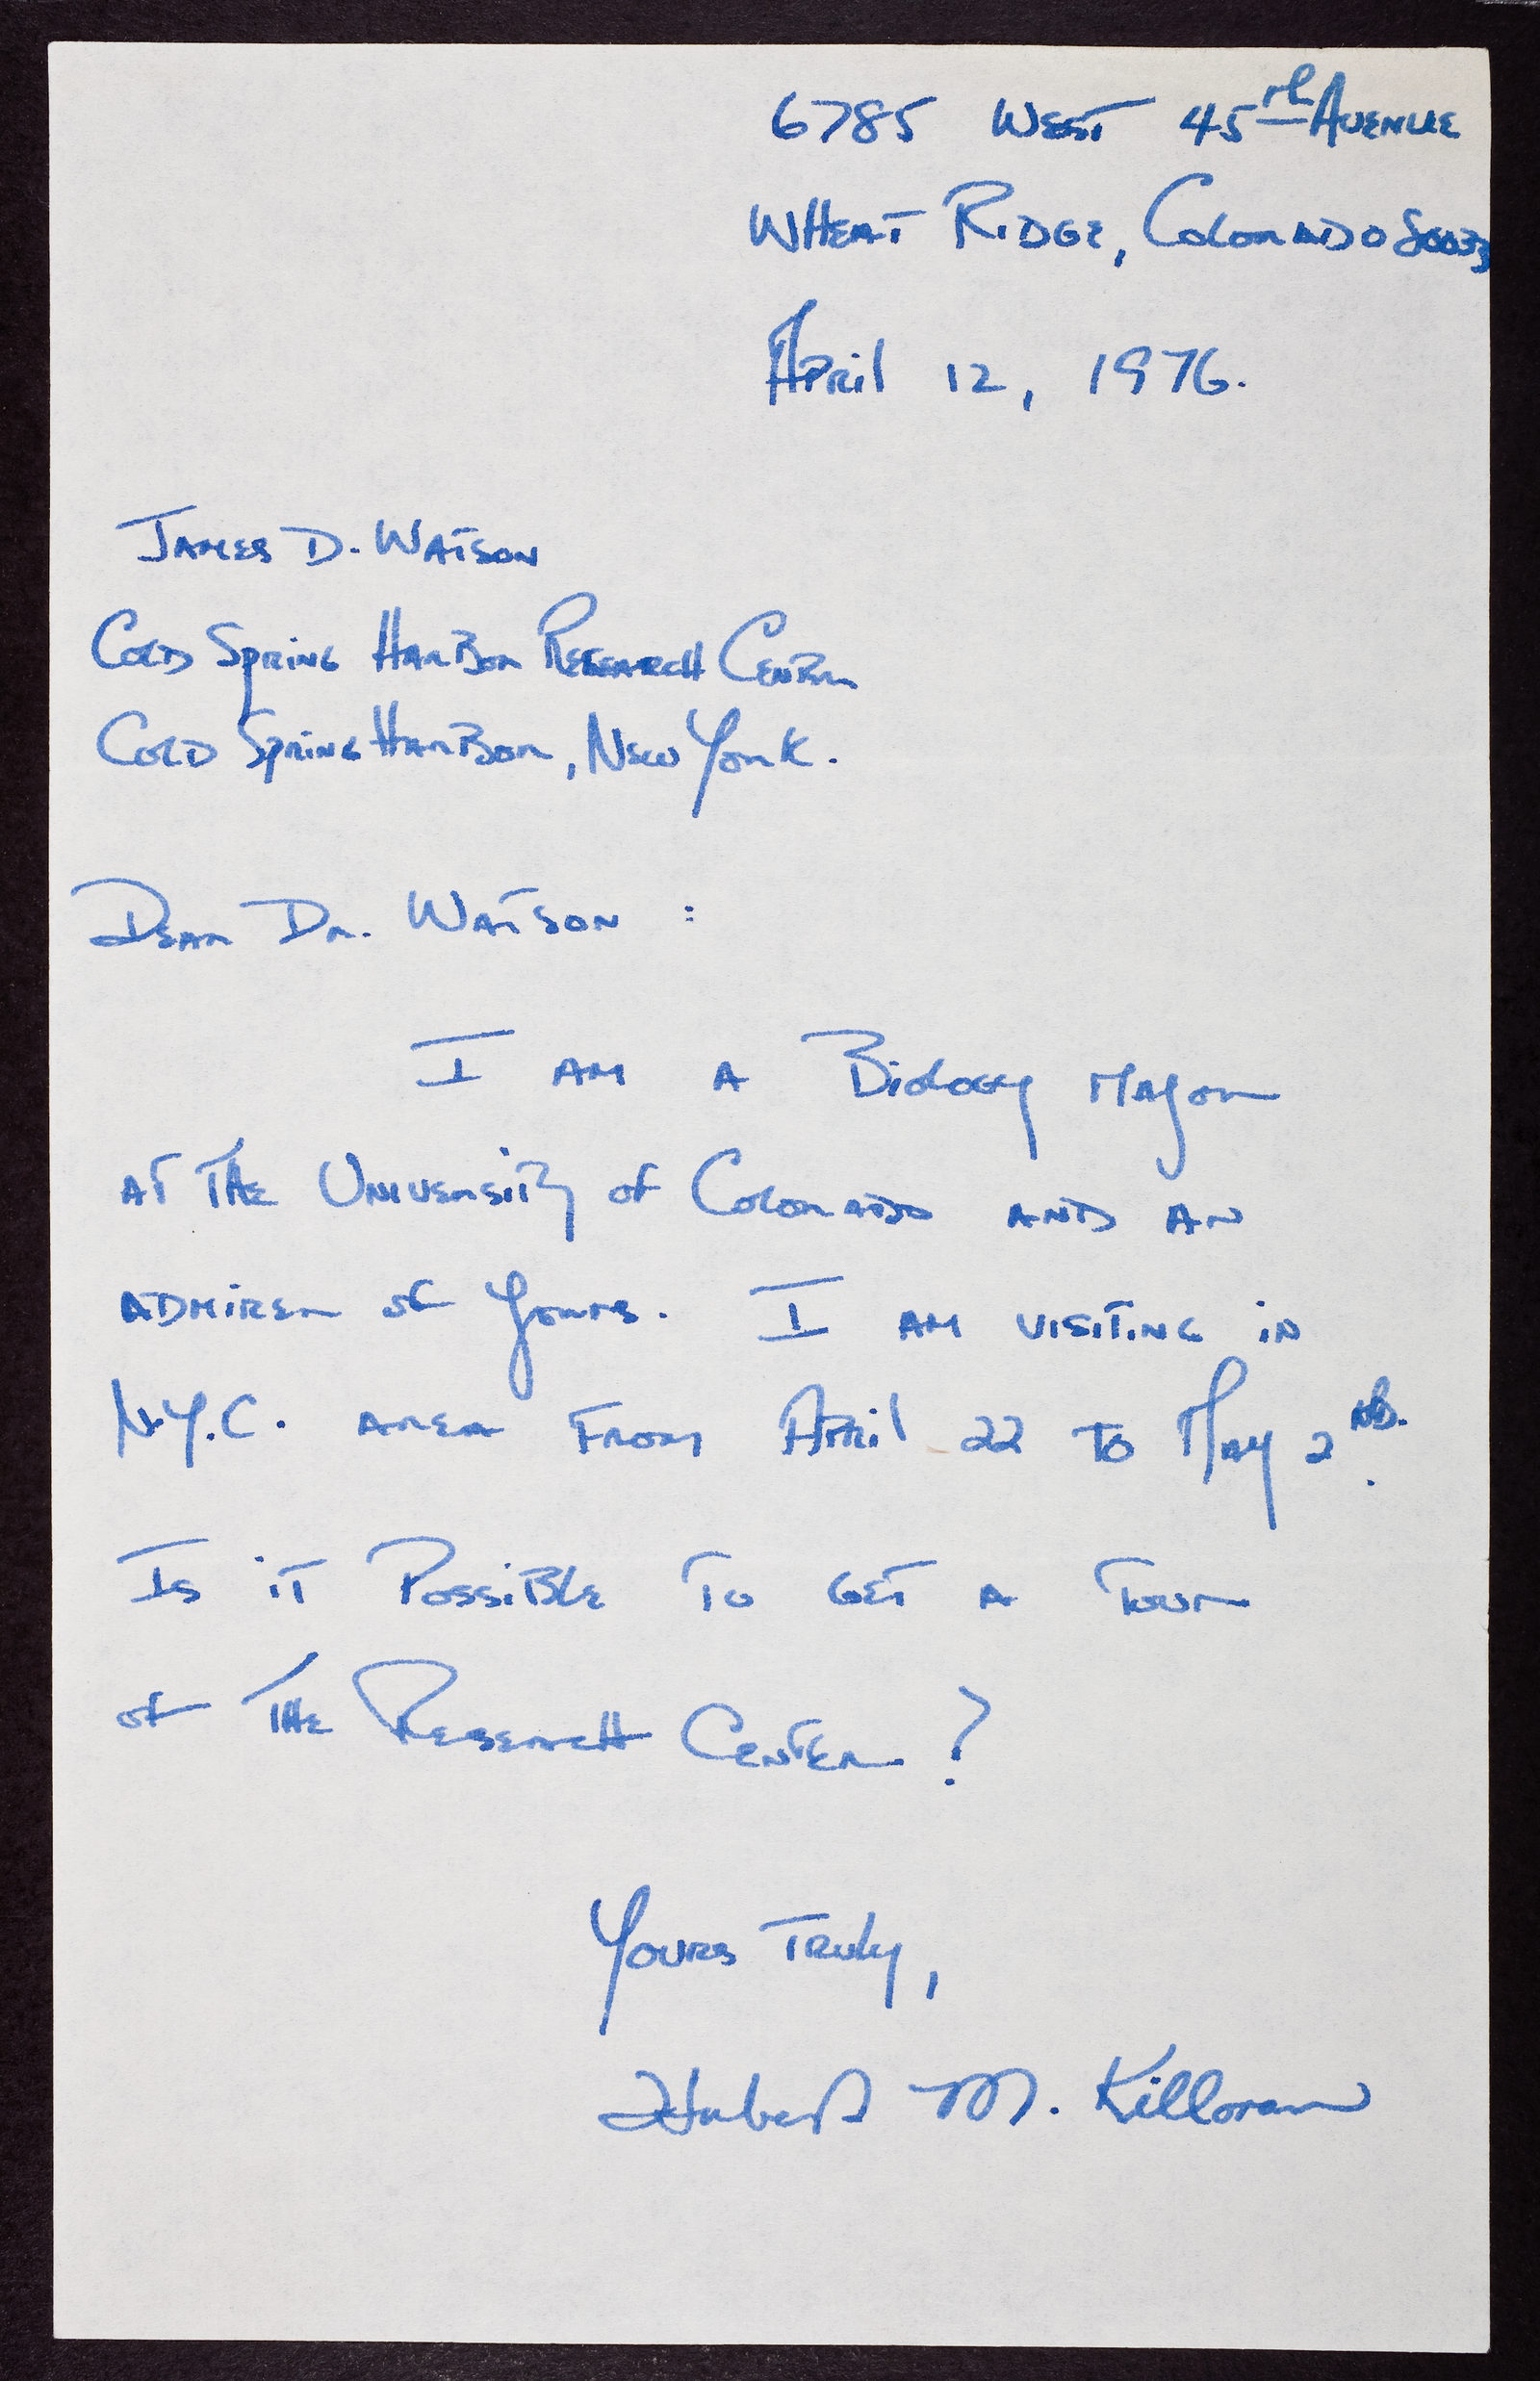 6785 West 45th Avenue
Wheat Ridge, Colorado 80033
April 12, 1976.
James D. Watson
Cold Spring Harbor Research Center
Cold Spring Harbor, New York.
Dear Dr. Watson :
I am a Biology Major
at the University of Colorado and an
admirer of yours. I am visiting in
N.Y.C. area from April 22 to May 2nd.
Is it Possible to get a tour
of the Research Center ?
Yours Truly,
Hubert M. Killoran